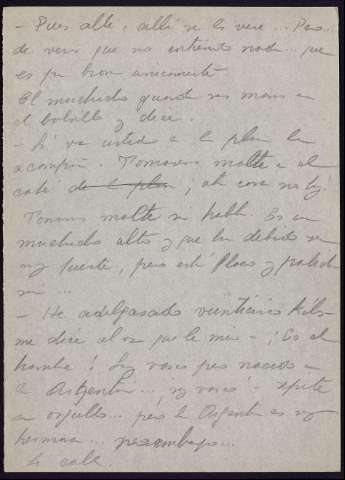 - Pues alli, alli se les vere... Pero...
de veras que no entiendo nada... que
es pa broma unicamente
El muchacho guarda sus manos en
el bolsillo y dice.
- Si va usted a la plaza le
acompaño. Tomaremos malte en el
café de la plaza, ahi cosa no hay.
Tomamos malte sin hablar. Es un
muchacho alto y que ha debido ser
muy fuerte, pero está flaco y palido
- He adelgasado veinticinco kilos
me dice al ver que le miro - ¡Es el
hambre! Soy vasco pero nacido en
la Argentina... muy vasco - repite
con orgullo... pero la Argentina es muy
hermosa... sin embargo...
Se calla.